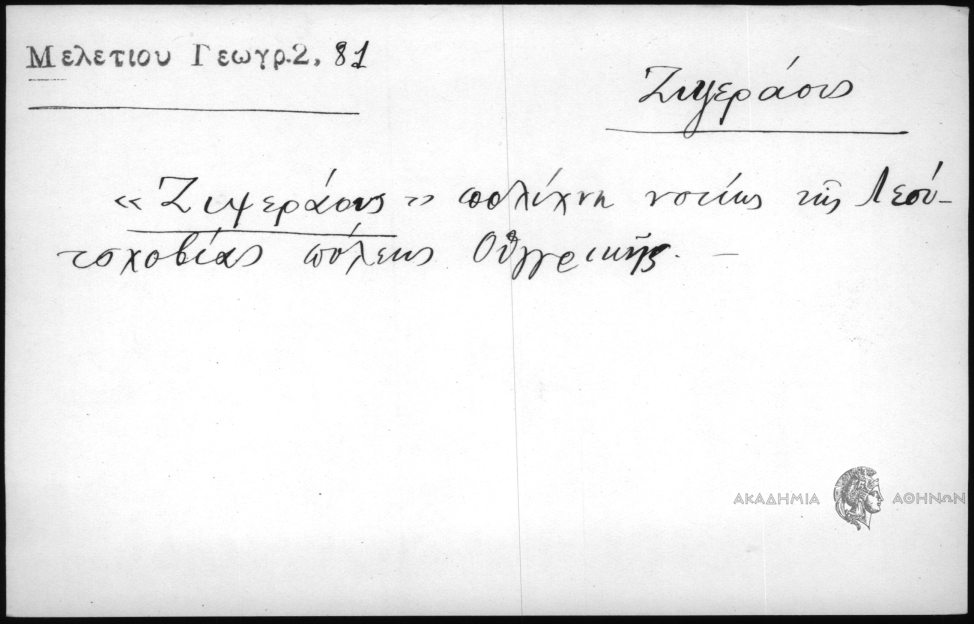 Μελετιου Γεωγρ.2, 81
Ζιψεράους
«Ζιψεράους» πολίχνη νοτίως τῆς Λεσύ-
τσχοβίας πόλεως Οὑγγρικῆς. —
ΑΚΑΔΗΜΙΑ ΑΘΗΝΩΝ